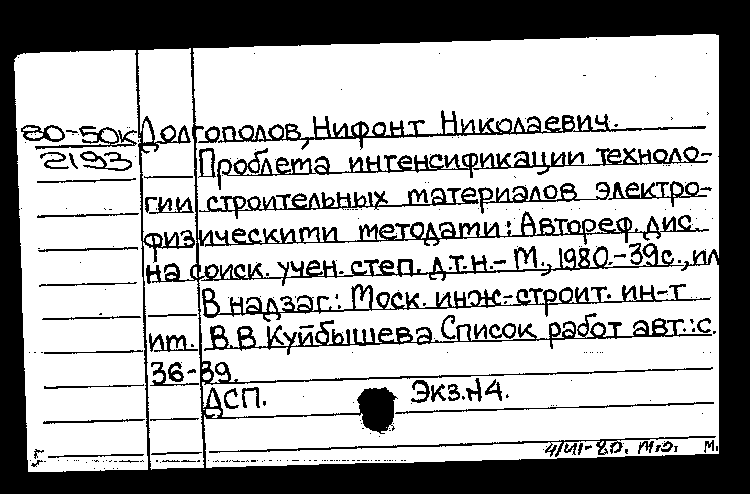 80-50к Долгополов, Нифонт Николаевич.
2193 Проблема интенсификации техноло-
гии строительных материалов электро-
физическими методами: Автореф. дис.
на соиск. учен. степ. д.т.н.-М., 1980.-39с., ил
В надзаг.: Моск. инж.-строит. ин-т
им. В.В Куйбышева Список работ авт.: с.
36-39.
ДСП. Экз.N4.
4/VII-80. М.Э. М.
5